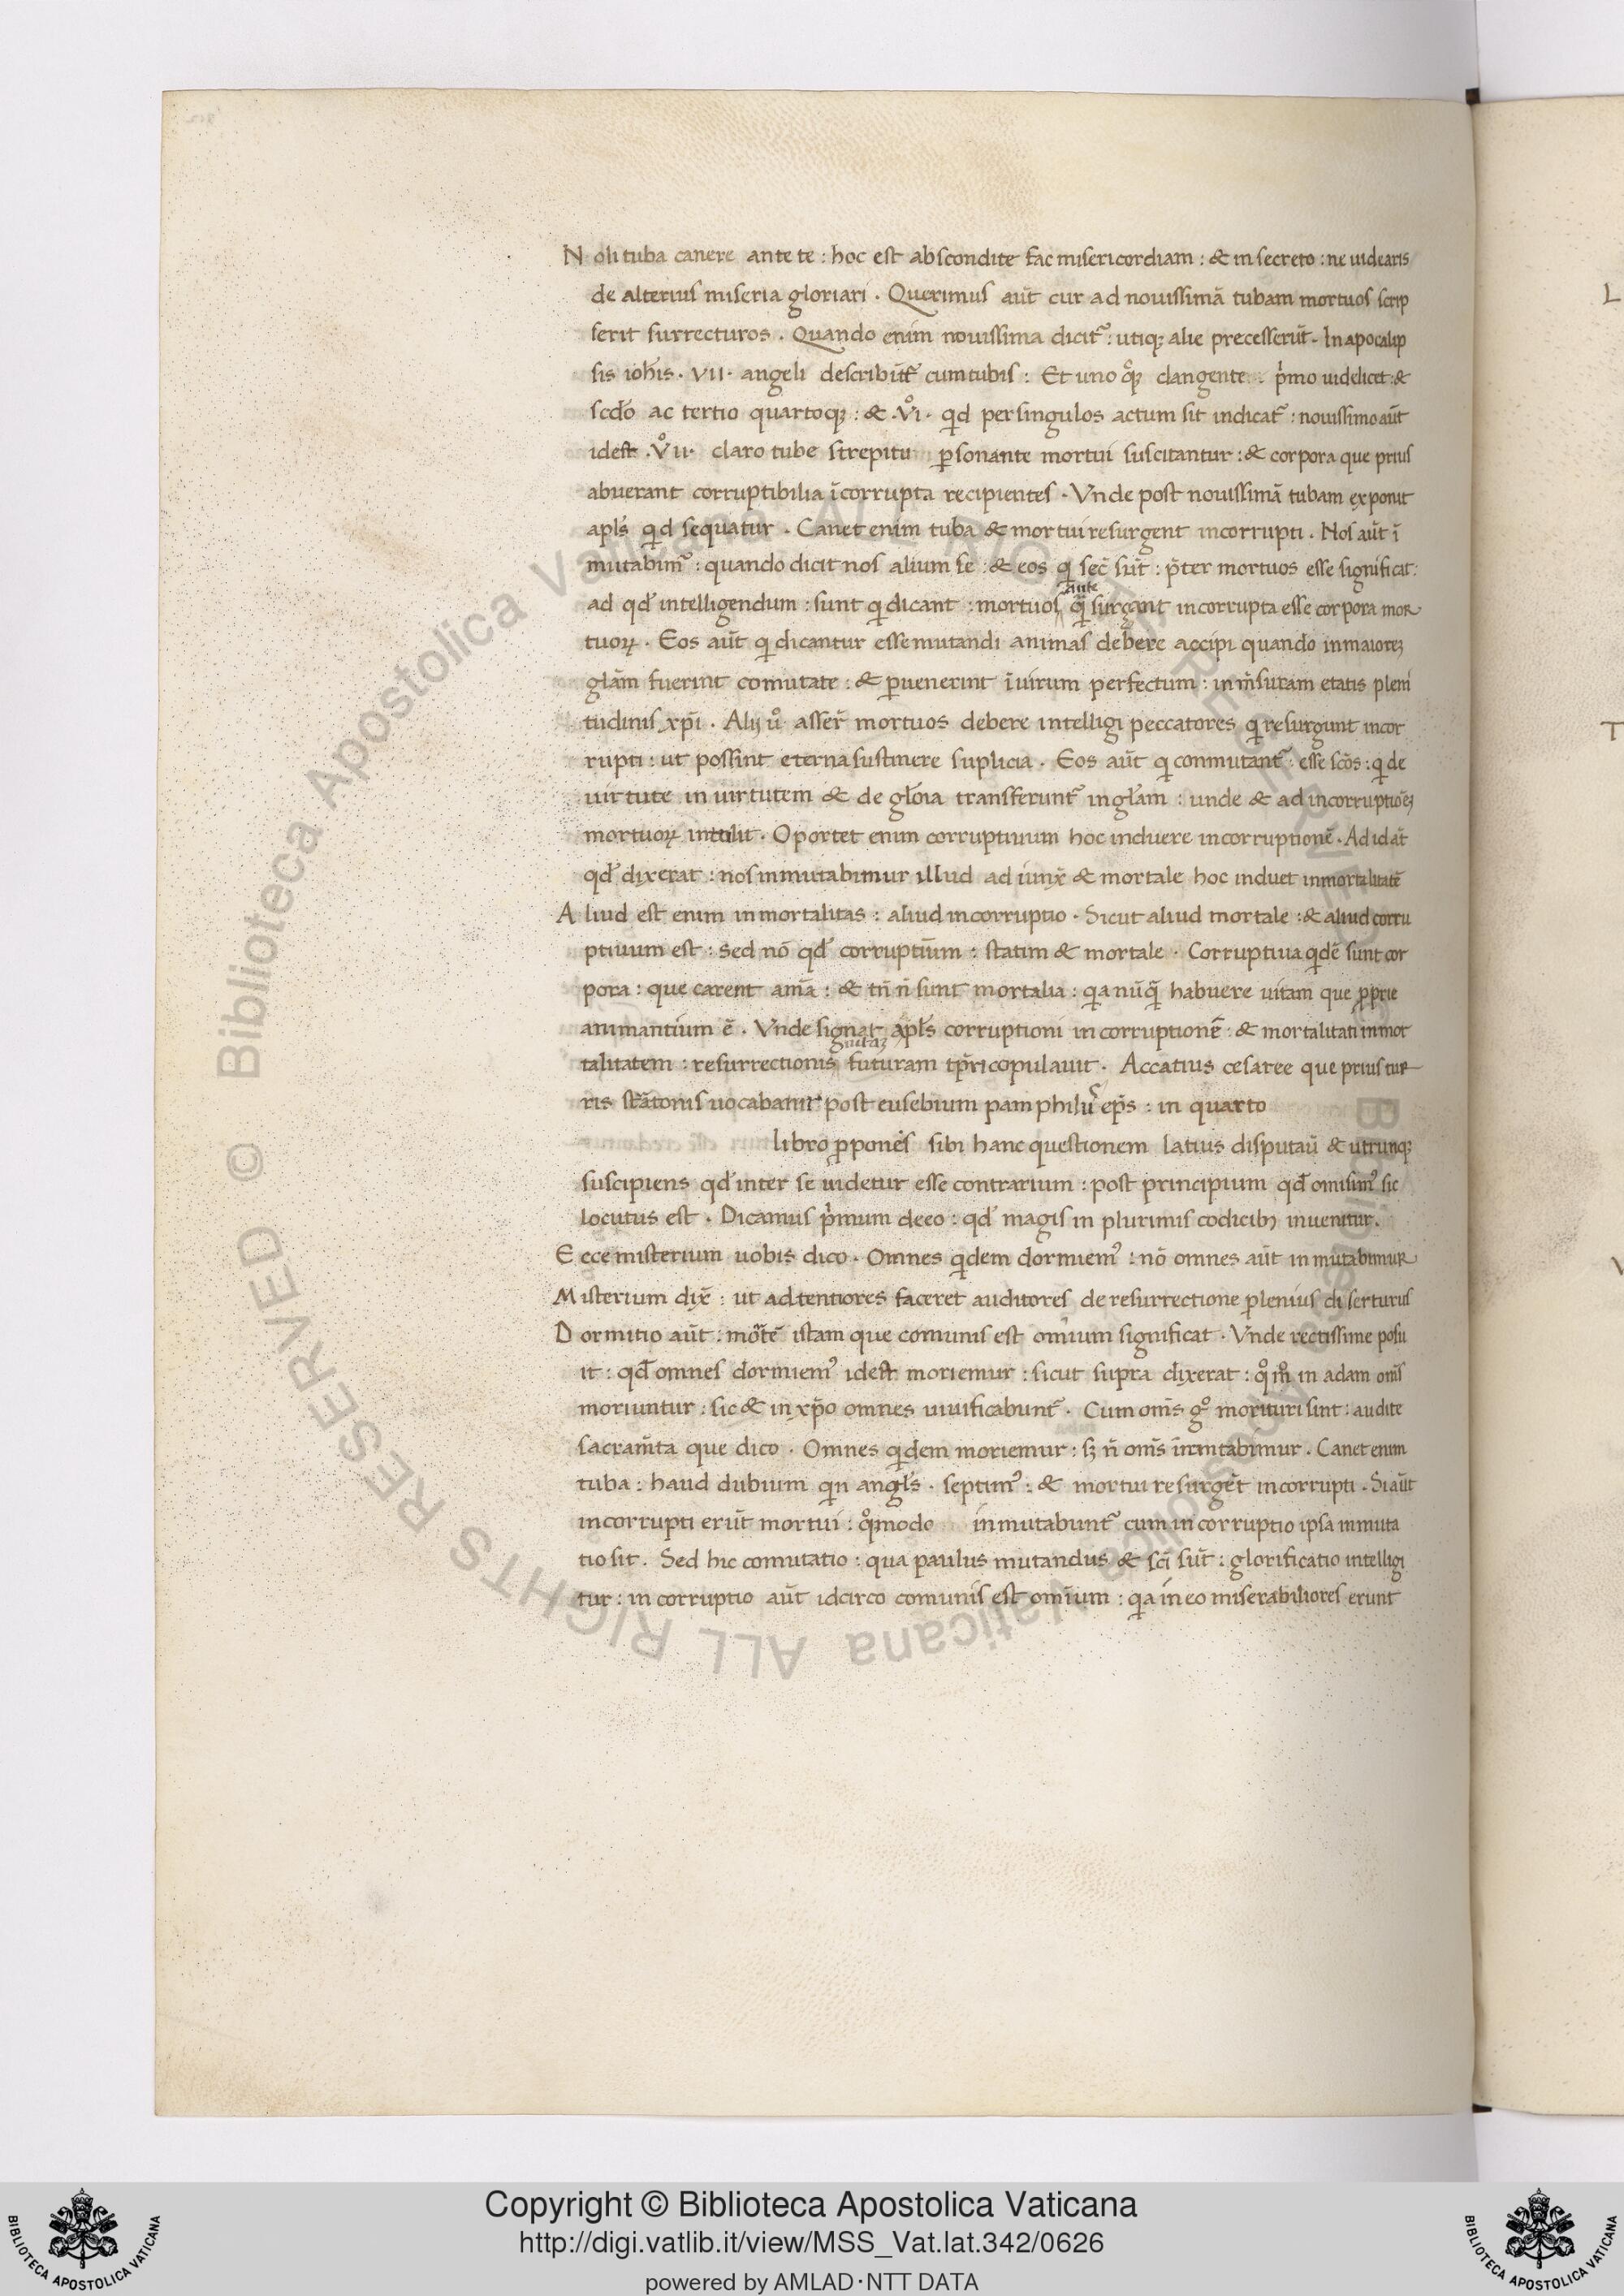 Noli tuba canere ante te : hoc est abscondite fac misericordiam : & in secreto : ne uidearis
de alterius miseria gloriari . Querimus aūt cur ad nouissimā tubam mortuos scrip
serit surrecturos . Quando enim nouissima dicit᷑ : utiqꝫ alie precesserūt . In apocalip
sis ioh̄is . VII . angeli describūt᷑ cum tubis : Et uno qͦqꝫ clangente . pͥmo uidelicet : &
scd̄o ac tertio quartoqꝫ : & . Vͦi . qͥd per singulos actum sit indicat᷑ : nouissimo aūt
idest . VͦII . claro tube strepitu ꝑsonante mortui suscitantur : & corpora que prius
abuerant corruptibilia īcorrupta recipientes . Vnde post nouissimā tubam exponit
apl̄s qͥd sequatur . Canet enim tuba & mortui resurgent incorrupti . Nos aūt ī
mutabimꝰ : quando dicit nos alium se : & eos qͥ sec̄ sūt : p̄ter mortuos esse significat :
ad qd̄ intelligendum : sunt qͥ dicant : mortuos ante qͣ̄ surgant incorrupta esse corpora mor
tuoꝝ . Eos aūt qͥ dicantur esse mutandi animas debere accipi quando in maioreꝫ
gl̄am fuerint comutate : & ꝑuenerint ī uirum perfectum : in m̄suram etatis pleni
tudinis xp̄i . Alij uͦ asser̄ mortuos debere intelligi peccatores qͥ resurgunt incor
rupti : ut possint eterna sustinere suplicia . Eos aūt qͥ conmutant᷑ : esse sc̄os : qͥ de
uirtute in uirtutem & de gl̄oia transferunt᷑ in gl̄am : unde & ad incorruptiōeꝫ
mortuoꝝ intulit . Oportet enim corruptiuum hoc induere incorruptionē . Ad id aūt
qd̄ dixerat : nos inmutabimur illud ad iunx̄ & mortale hoc induet inmortalitatē
Aliud est enim inmortalitas : aliud incorruptio . Sicut aliud mortale : & aliud corru
ptiuum est : Sed nō qd̄ corruptiūm : statim & mortale . Corruptiua qͥdē sunt cor
pora : que carent aīa : & tn̄ n̄ sunt mortalia : qͥa nūqͣ̄ habuere uitam que ꝓprie
animantium ē . Vnde signat apl̄s corruptioni incorruptionē : & mortalitati inmor
talitatem : resurrectionis futuram tp̄ri copulauit . Accatius cesaree que prius tur
ris strātonis uocabatur post eusebium pamphilū ep̄s : in quarto
libro ꝓponēs sibi hanc questionem latius disputaū & utrunqꝫ
suscipiens qd̄ inter se uidetur esse contrarium : post principium qd̄ omisimꝰ sic
locutus est . Dicamus pͥmum de eo : qd̄ magis in plurimis codicibꝫ inuenitur .
Ecce misterium uobis dico . Omnes qͥdem dormiemꝰ : nō omnes aūt inmutabimur
Misterium dix̄ : ut adtentiores faceret auditores de resurrectione plenius diserturus
Dormitio aūt : mortē istam que comunis est omium significat . Vnde rectissime posu
it : qd̄ omnes dormiemꝰ idest moriemur : sicut supra dixerat : qͦ mͦ in adam om̄s
moriuntur : sic & in xp̄o omnes uiuificabunt᷑ . Cum om̄s gͦ morituri sint : audite
sacram̄ta que dico . Omnes qͥdem moriemur : sꝫ n̄ om̄s inmtabimur . Canet enim
tuba : haud dubium qͥn angl̄s . septimꝰ : & mortui resurgēt incorrupti . Si aūt
incorrupti erūt mortui : qͦmodo inmutabunt᷑ cum incorruptio ipsa inmuta
tio sit . Sed hic comutatio : qua paulus mutandus & sc̄i sūt : glorificatio intelligi
tur : incorruptio aūt idcirco comunis est omīum : qͥa in eo miserabiliores erunt
Copyright © Biblioteca Apostolica Vaticana
http://digi.vatlib.it/view/MSS_Vat.lat.342/0626
powered by AMLAD·NTT DATA
BIBLIOTECA APOSTOLICA VATICANA
BIBLIOTECA APOSTOLICA VATICANA
© Biblioteca Apostolica Vaticana ALL RIGHTS RESERVED